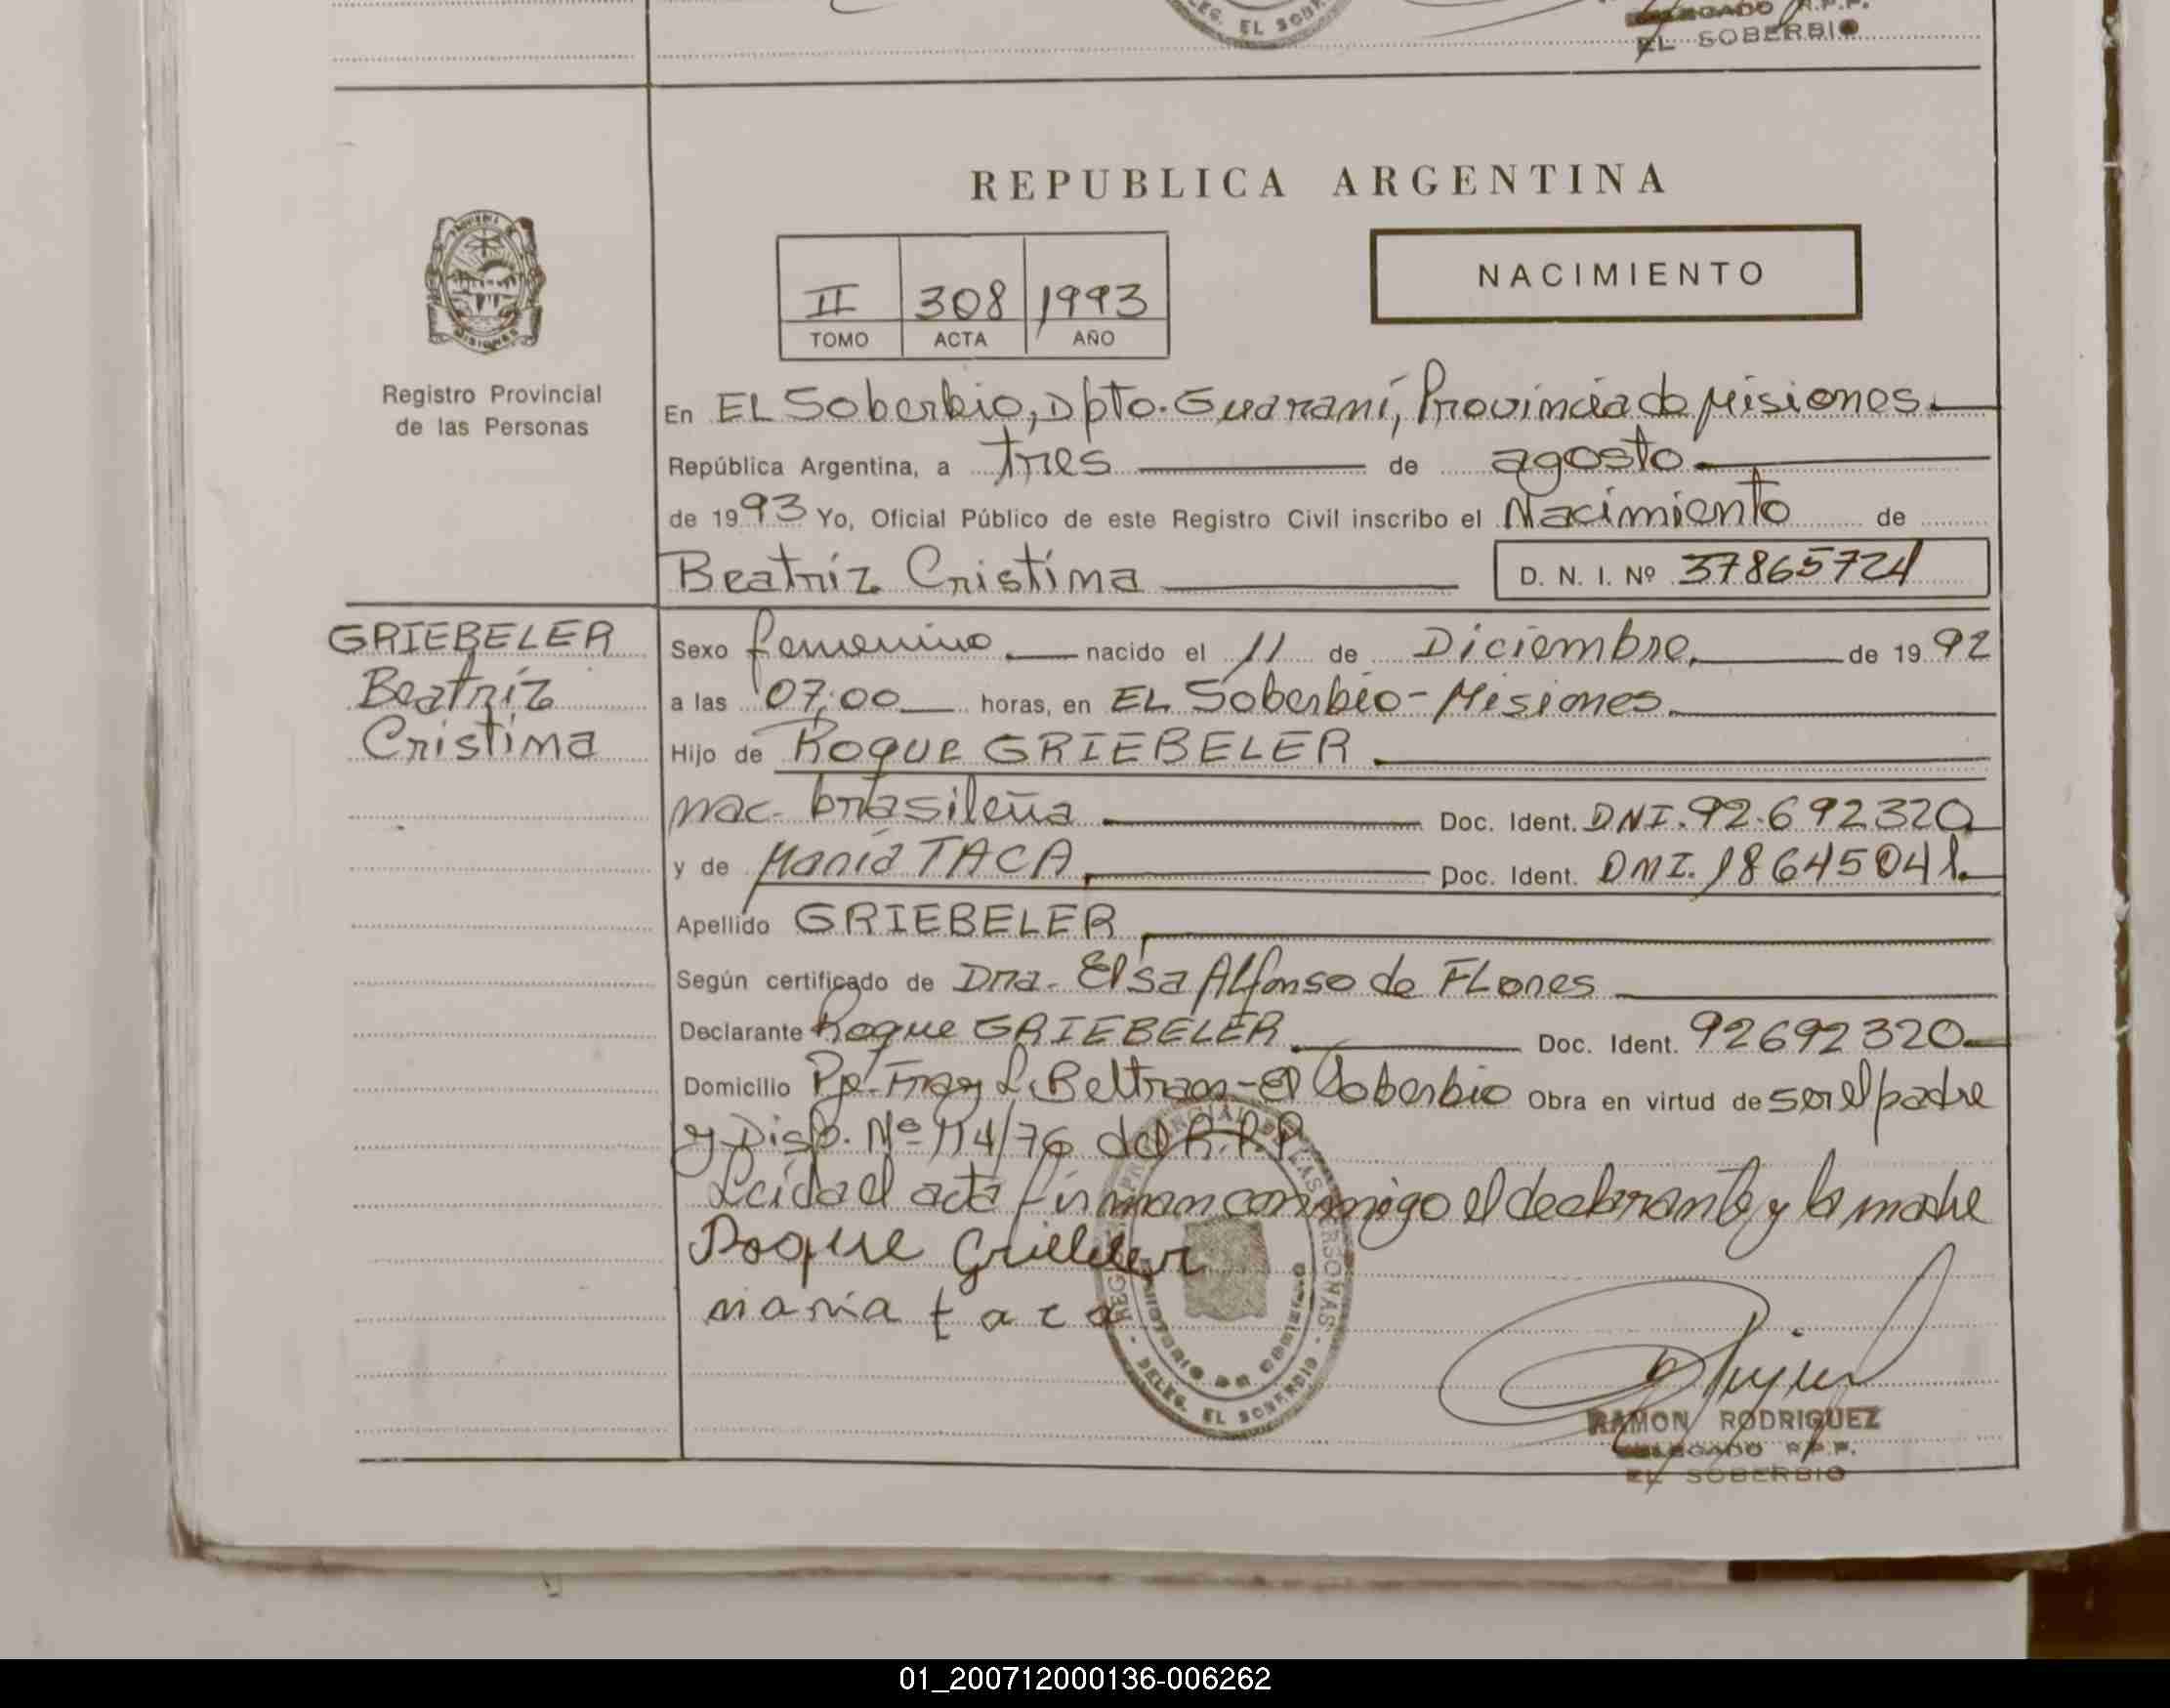 EL SOBERBIO
REPUBLICA ARGENTINA
II 308 1993
TOMO ACTA AÑO
NACIMIENTO
Registro Provincial
de las Personas
En EL Soberbio, Dpto. Guaraní, Provincia de Misiones.
República Argentina, a tres de agosto
de 1993 Yo, Oficial Público de este Registro Civil inscribo el Nacimiento de
Beatriz Cristina D. N. I. Nº 37865724
GRIEBELER
Beatriz
Cristina
Sexo femenino nacido el 11 de Diciembre de 1992
a las 07:00 horas, en EL Soberbio - Misiones.
Hijo de Roque GRIEBELER
nac. brasileña Doc. Ident. DNI. 92.692320
y de María TACA Doc. Ident. DNI. 18645041.
Apellido GRIEBELER
Según certificado de Dra. Elsa Alfonso de FLores
Declarante Roque GRIEBELER Doc. Ident. 92692320
Domicilio Pje. Fray L. Beltran - El Soberbio Obra en virtud de ser el padre
y Disp. Nº 114/76 del R.P.P.
Leída el acta firman conmigo el declarante y la madre
Roque Griebeler
maria taca
DELEG. EL SOBERBIO
RAMON RODRIGUEZ
DELEGADO R.P.P.
EL SOBERBIO
01_200712000136-006262